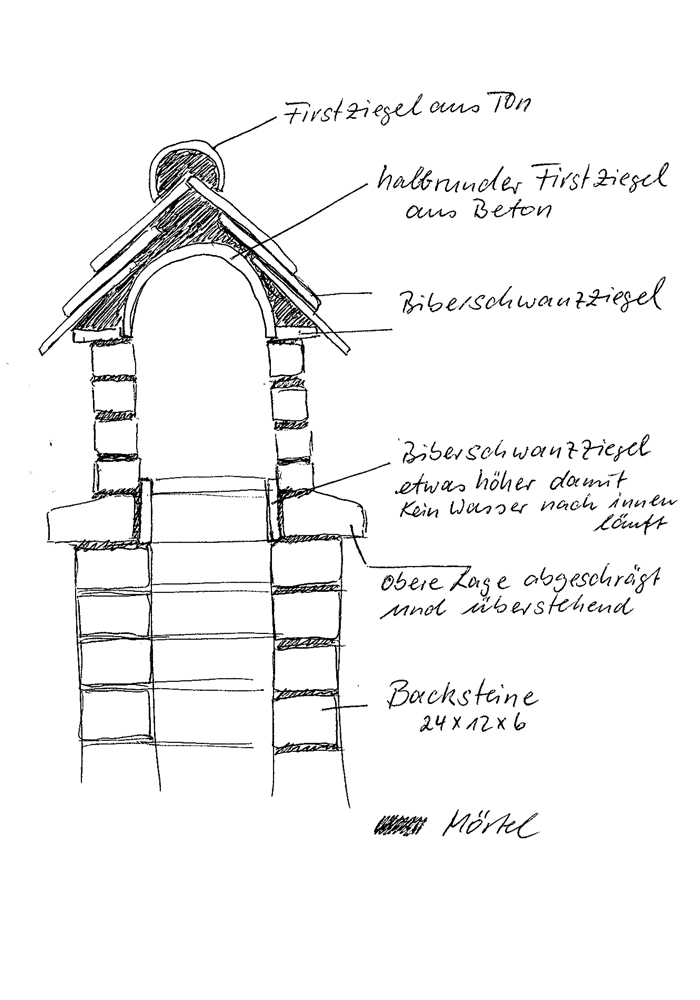 Firstziegel aus Ton
halbrunder Firstziegel
aus Beton
Biberschwanzziegel
Biberschwanzziegel
etwas höher damit
kein Wasser nach innen
läuft
obere Lage abgeschrägt
und überstehend
Backsteine
24x12x6
Mörtel